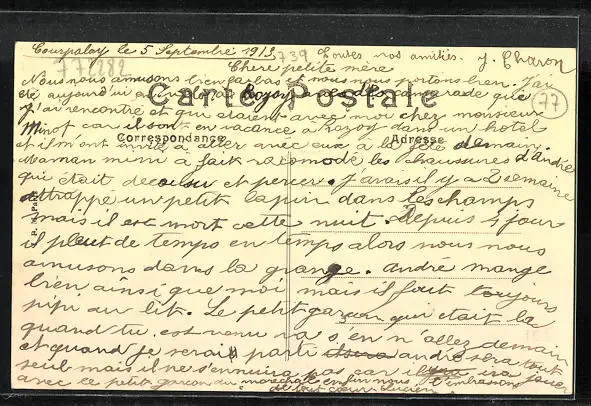 Courpalay le 5 Septembre 1913
739 toutes nos amitiés. J. Charon
77 (282
Chère petite mère
Nous nous amusons bien là bas et nous nous portons bien. J'ai
été aujourd'hui à Rozoy avec des camarade que
Carte Postale
77
j'ai rencontré et qui étaient avec moi chez monsieur
Minot car il sont en vacance à rozoy dans un hotel
Correspondance
Adresse
et il m'ont invité à aller avec eux à la fête demain.
Maman mimi à fait racomodé les chaussures d'André
qui était décousu et percer. J'avais il y a 2 semaine
attrappé un petit lapin dans les champs
mais il est mort cette nuit. Depuis 4 jours
il pleut de temps en temps alors nous nous
amusons dans la grange. André mange
bien ainsi que moi mais il fait toujours
pipi au lit. Le petit garçon qui était là
quand tu est venu va s'en n'allez demain
et quand je serai parti andré sera tout
seul mais il ne s'ennuira pas car il ira jouer
avec ce petit garçon du maréchal enfin nous t'embrasons
de tout cœur Lucien